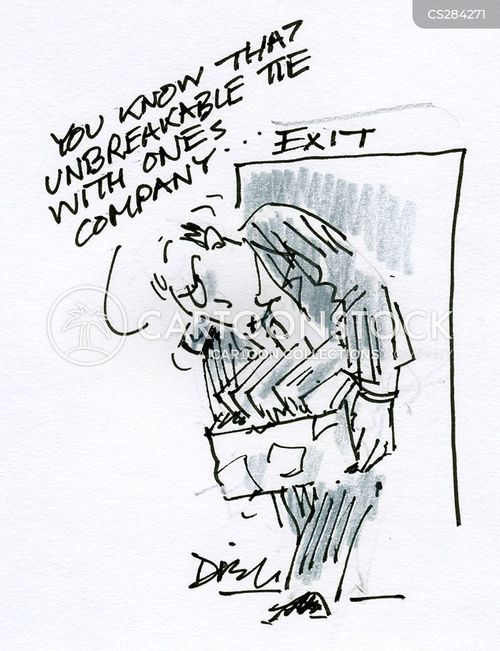 CS284271
YOU KNOW THAT
UNBREAKABLE TIE
WITH ONES
COMPANY...
EXIT
CARTOONSTOCK
CARTOON COLLECTIONS COMPANY